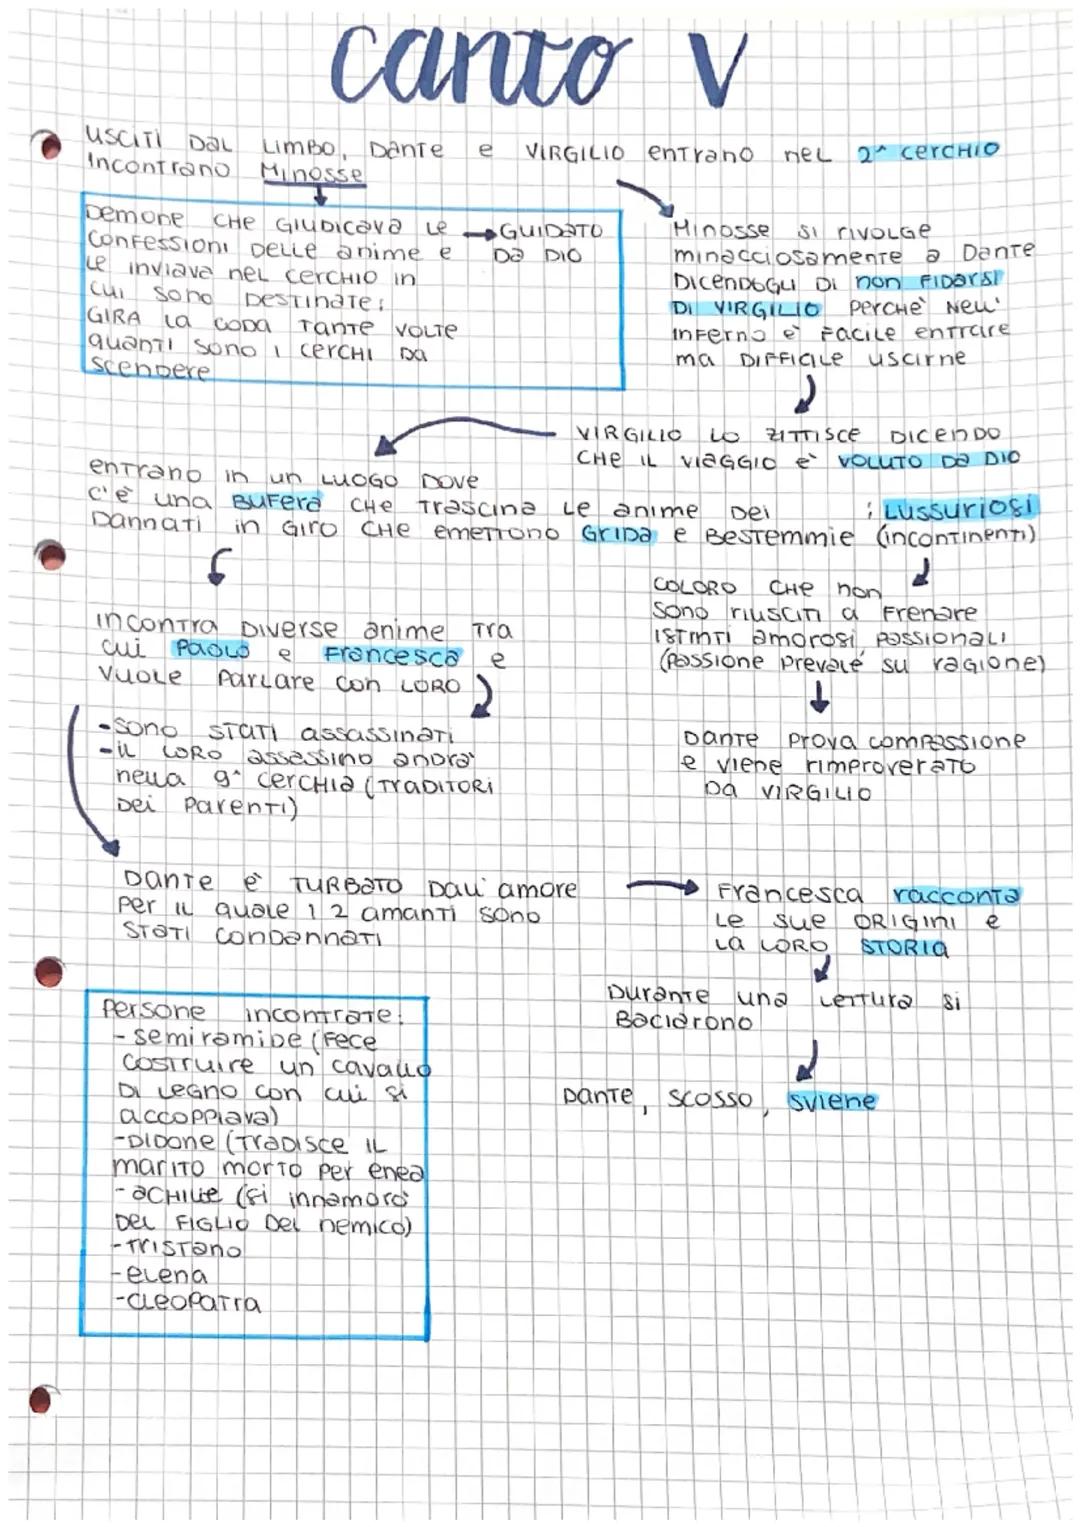 canto V
USCITI DAL LIMBO, DANTE e VIRGILIO ENTRANO NEL 2^ CERCHIO
INCONTRANO MINOSSE
DEMONE CHE GIUDICAVA LE → GUIDATO
CONFESSIONI DELLE ANIME E DA DIO
LE INVIAVA NEL CERCHIO IN
CUI SONO DESTINATE;
GIRA LA CODA TANTE VOLTE
QUANTI SONO I CERCHI DA
SCENDERE
MINOSSE SI RIVOLGE
MINACCIOSAMENTE A DANTE
DICENDOGLI DI NON FIDARSI
DI VIRGILIO PERCHÈ NELL'
INFERNO È FACILE ENTRARE
MA DIFFICILE USCIRNE
VIRGILIO LO ZITTISCE DICENDO
CHE IL VIAGGIO È VOLUTO DA DIO
ENTRANO IN UN LUOGO DOVE
C'È UNA BUFERA CHE TRASCINA LE ANIME DEI : LUSSURIOSI
DANNATI IN GIRO CHE EMETTONO GRIDA E BESTEMMIE (INCONTINENTI)
COLORO CHE NON
SONO RIUSCITI A FRENARE
ISTINTI AMOROSI, PASSIONALI
(PASSIONE PREVALE SU RAGIONE)
DANTE PROVA COMPASSIONE
E VIENE RIMPROVERATO
DA VIRGILIO
INCONTRA DIVERSE ANIME TRA
CUI PAOLO E FRANCESCA E
VUOLE PARLARE CON LORO
-SONO STATI ASSASSINATI
-IL LORO ASSASSINO ANDRÀ
NELLA 9^ CERCHIA (TRADITORI
DEI PARENTI)
DANTE È TURBATO DALL'AMORE
PER IL QUALE I 2 AMANTI SONO
STATI CONDANNATI
FRANCESCA RACCONTA
LE SUE ORIGINI E
LA LORO STORIA
DURANTE UNA LETTURA SI
BACIARONO
DANTE, SCOSSO, SVIENE
PERSONE INCONTRATE:
-SEMIRAMIDE (FECE
COSTRUIRE UN CAVALLO
DI LEGNO CON CUI SI
ACCOPPIAVA)
-DIDONE (TRADISCE IL
MARITO MORTO PER ENEA
-ACHILLE (SI INNAMORÒ
DEL FIGLIO DEL NEMICO)
-TRISTANO
-ELENA
-CLEOPATRA